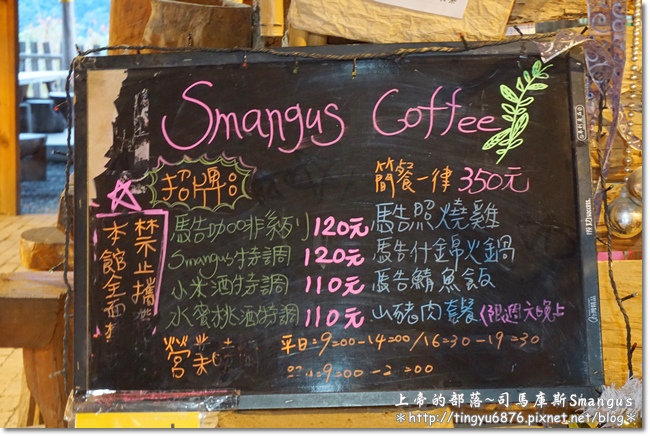 Smangus Coffee
招牌
簡餐一律350元
馬告咖 120元
Smangus特調 120元
小米酒特調 110元
水蜜桃酒特調 110元
馬告照燒雞
馬告什錦火鍋
馬告鯖魚飯
山豬肉套餐 週六晚上
禁止攜
本館全面
營業
平日=9=00-14=00/16=30-19=30
9=00-2
上帝的部落~司馬庫斯Smangus
*http://tingyu6876.pixnet.net/blog*